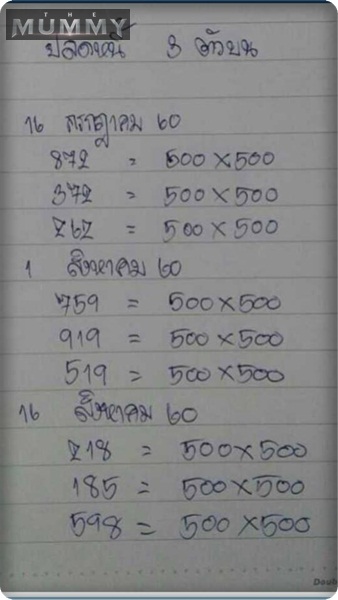 THE
MUMMY
ปลดหนี้ 3 ตัวบน
16 กรกฎาคม 60
872 = 500 x 500
372 = 500 x 500
262 = 500 x 500
1 สิงหาคม 60
759 = 500 x 500
919 = 500 x 500
519 = 500 x 500
16 สิงหาคม 60
218 = 500 x 500
185 = 500 x 500
598 = 500 x 500
Doub